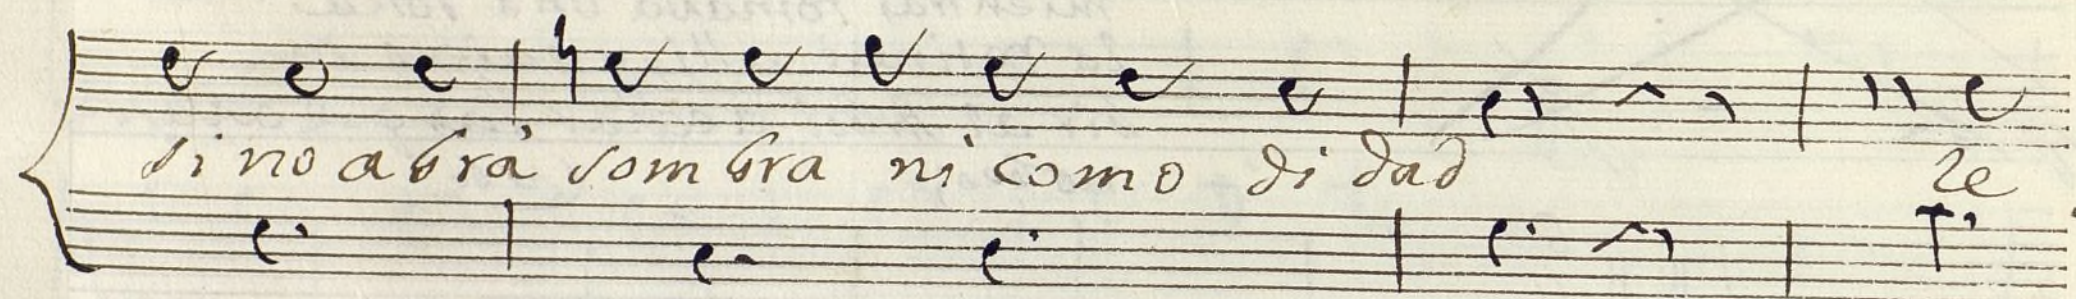 si no abrá sombra ni como di dad ze